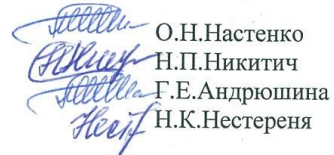 О.Н.Настенко
Н.П.Никитич
Г.Е.Андрюшина
Н.К.Нестереня